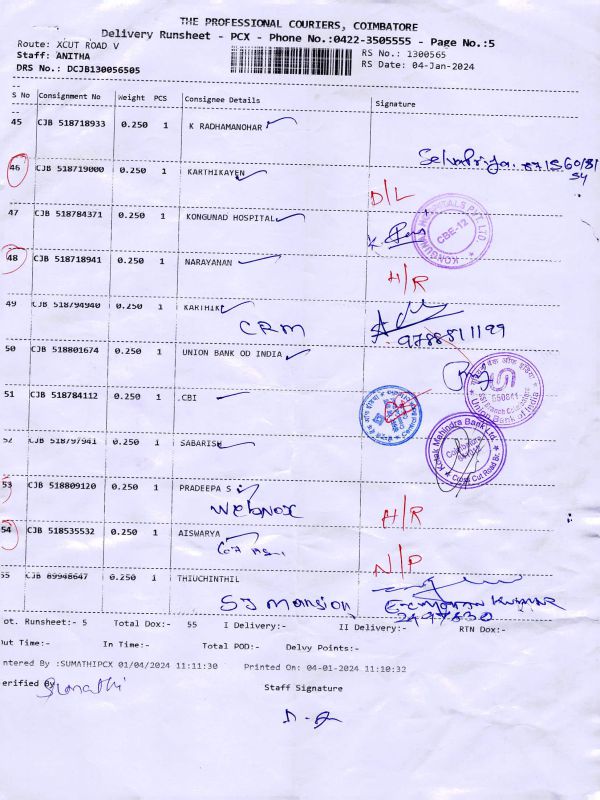 THE PROFESSIONAL COURIERS, COIMBATORE
Delivery Runsheet - PCX - Phone No.:0422-3505555 - Page No.:5
Route: XCUT ROAD V RS No.: 1300565
Staff: ANITHA RS Date: 04-Jan-2024
DRS No.: DCJB130056505
S No Consignment No Weight PCS Consignee Details Signature
45 CJB 518718933 0.250 1 K RADHAMANOHAR
46 CJB 518719000 0.250 1 KARTHIKAYEN
D/L
47 CJB 518784371 0.250 1 KONGUNAD HOSPITAL
CBE-12
48 CJB 518718941 0.250 1 NARAYANAN
H/R
49 CJB 518794940 0.250 1 KARTHIK
CRM 9788811199
50 CJB 518801674 0.250 1 UNION BANK OD INDIA
Union Bank of India
51 CJB 518784112 0.250 1 CBI
52 CJB 518797941 0.250 1 SABARISH
Kotak Mahindra Bank Ltd.
Coimbatore
Cross Cut Road Br.
53 CJB 518809120 0.250 1 PRADEEPA S
Webnox H/R
54 CJB 518535532 0.250 1 AISWARYA
N/P
55 CJB 89948647 0.250 1 THIUCHINTHIL
SJ Mansion
ot. Runsheet:- 5 Total Dox:- 55 I Delivery:- II Delivery:- RTN Dox:-
ut Time:- In Time:- Total POD:- Delvy Points:-
ntered By :SUMATHIPCX 01/04/2024 11:11:30 Printed On: 04-01-2024 11:10:32
erified By Sumathi
Staff Signature